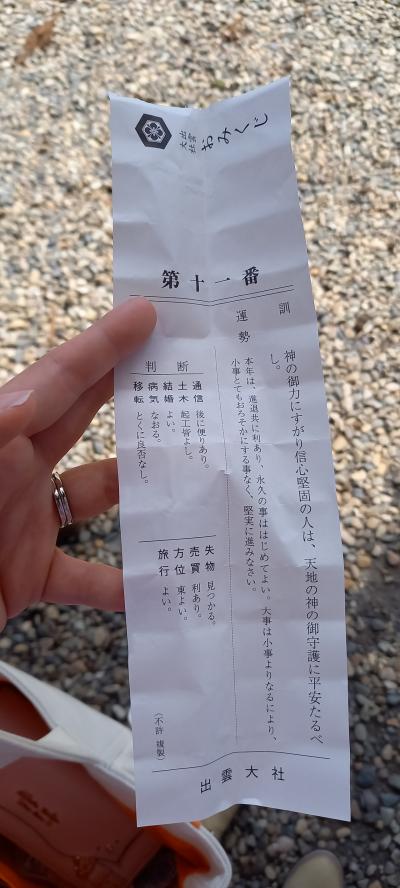 出雲大社
おみくじ
第十一番
訓
神の御力にすがり信心堅固の人は、天地の神の御守護に平安たるべ
し。
運勢
本年は、進退共に利あり、永久の事ははじめてよい。大事は小事よりなるにより、
小事とてもおろそかにする事なく、堅実に進みなさい。
判断
通信 後に便りあり。
土木 起工皆よし。
結婚 よい。
病気 なおる。
移転 とくに良否なし。
失物 見つかる。
売買 利あり。
方位 東よい。
旅行 よい。
(不許複製)
出雲大社